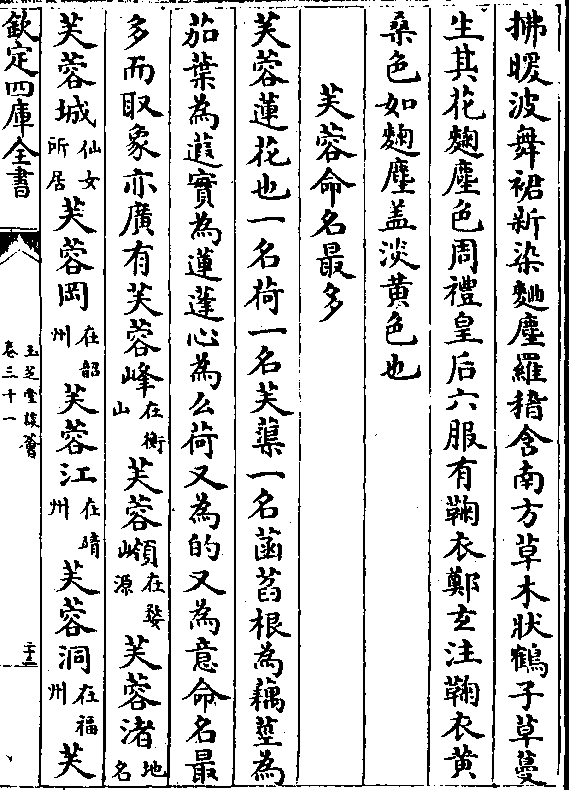 拂暖波舞裙新染麴塵羅稽含南方草木狀鶴子草蔓
生其花麴塵色周禮皇后六服有鞠衣鄭玄注鞠衣黄
桑色如麴塵盖淡黄色也
芙蓉命名最多
芙蓉蓮花也一名荷一名芙蕖一名菡萏根為藕莖為
茄葉為葭實為蓮蓬心為么荷又為的又為意命名最
多而取象亦廣有芙蓉峰在衡山芙蓉嶺在婺源芙蓉渚地名
芙蓉城仙女所居芙蓉岡在韶州芙蓉江在晴州芙蓉洞在福州芙
欽定四庫全書
玉芝堂談薈
卷三十一
二十三